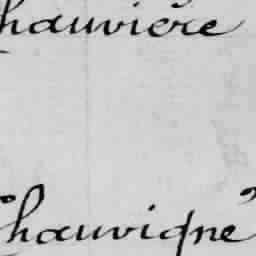 hauvière
hauvigné